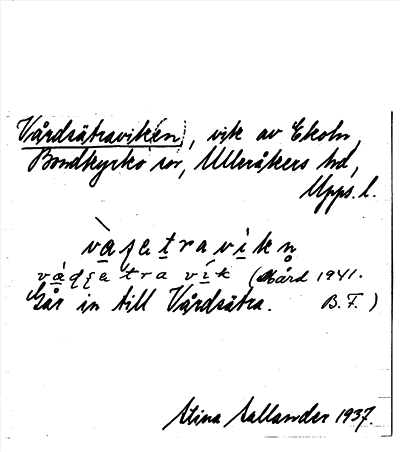 Vårdsätraviken, vik av Ekoln,
Bondkyrko sn, Ulleråkers hd,
Upps. l.
vaʃetravikn
vaʃetra vik (Mård 1941.
Går in till Vårdsätra. B.F.)
Stina Sallander 1937.